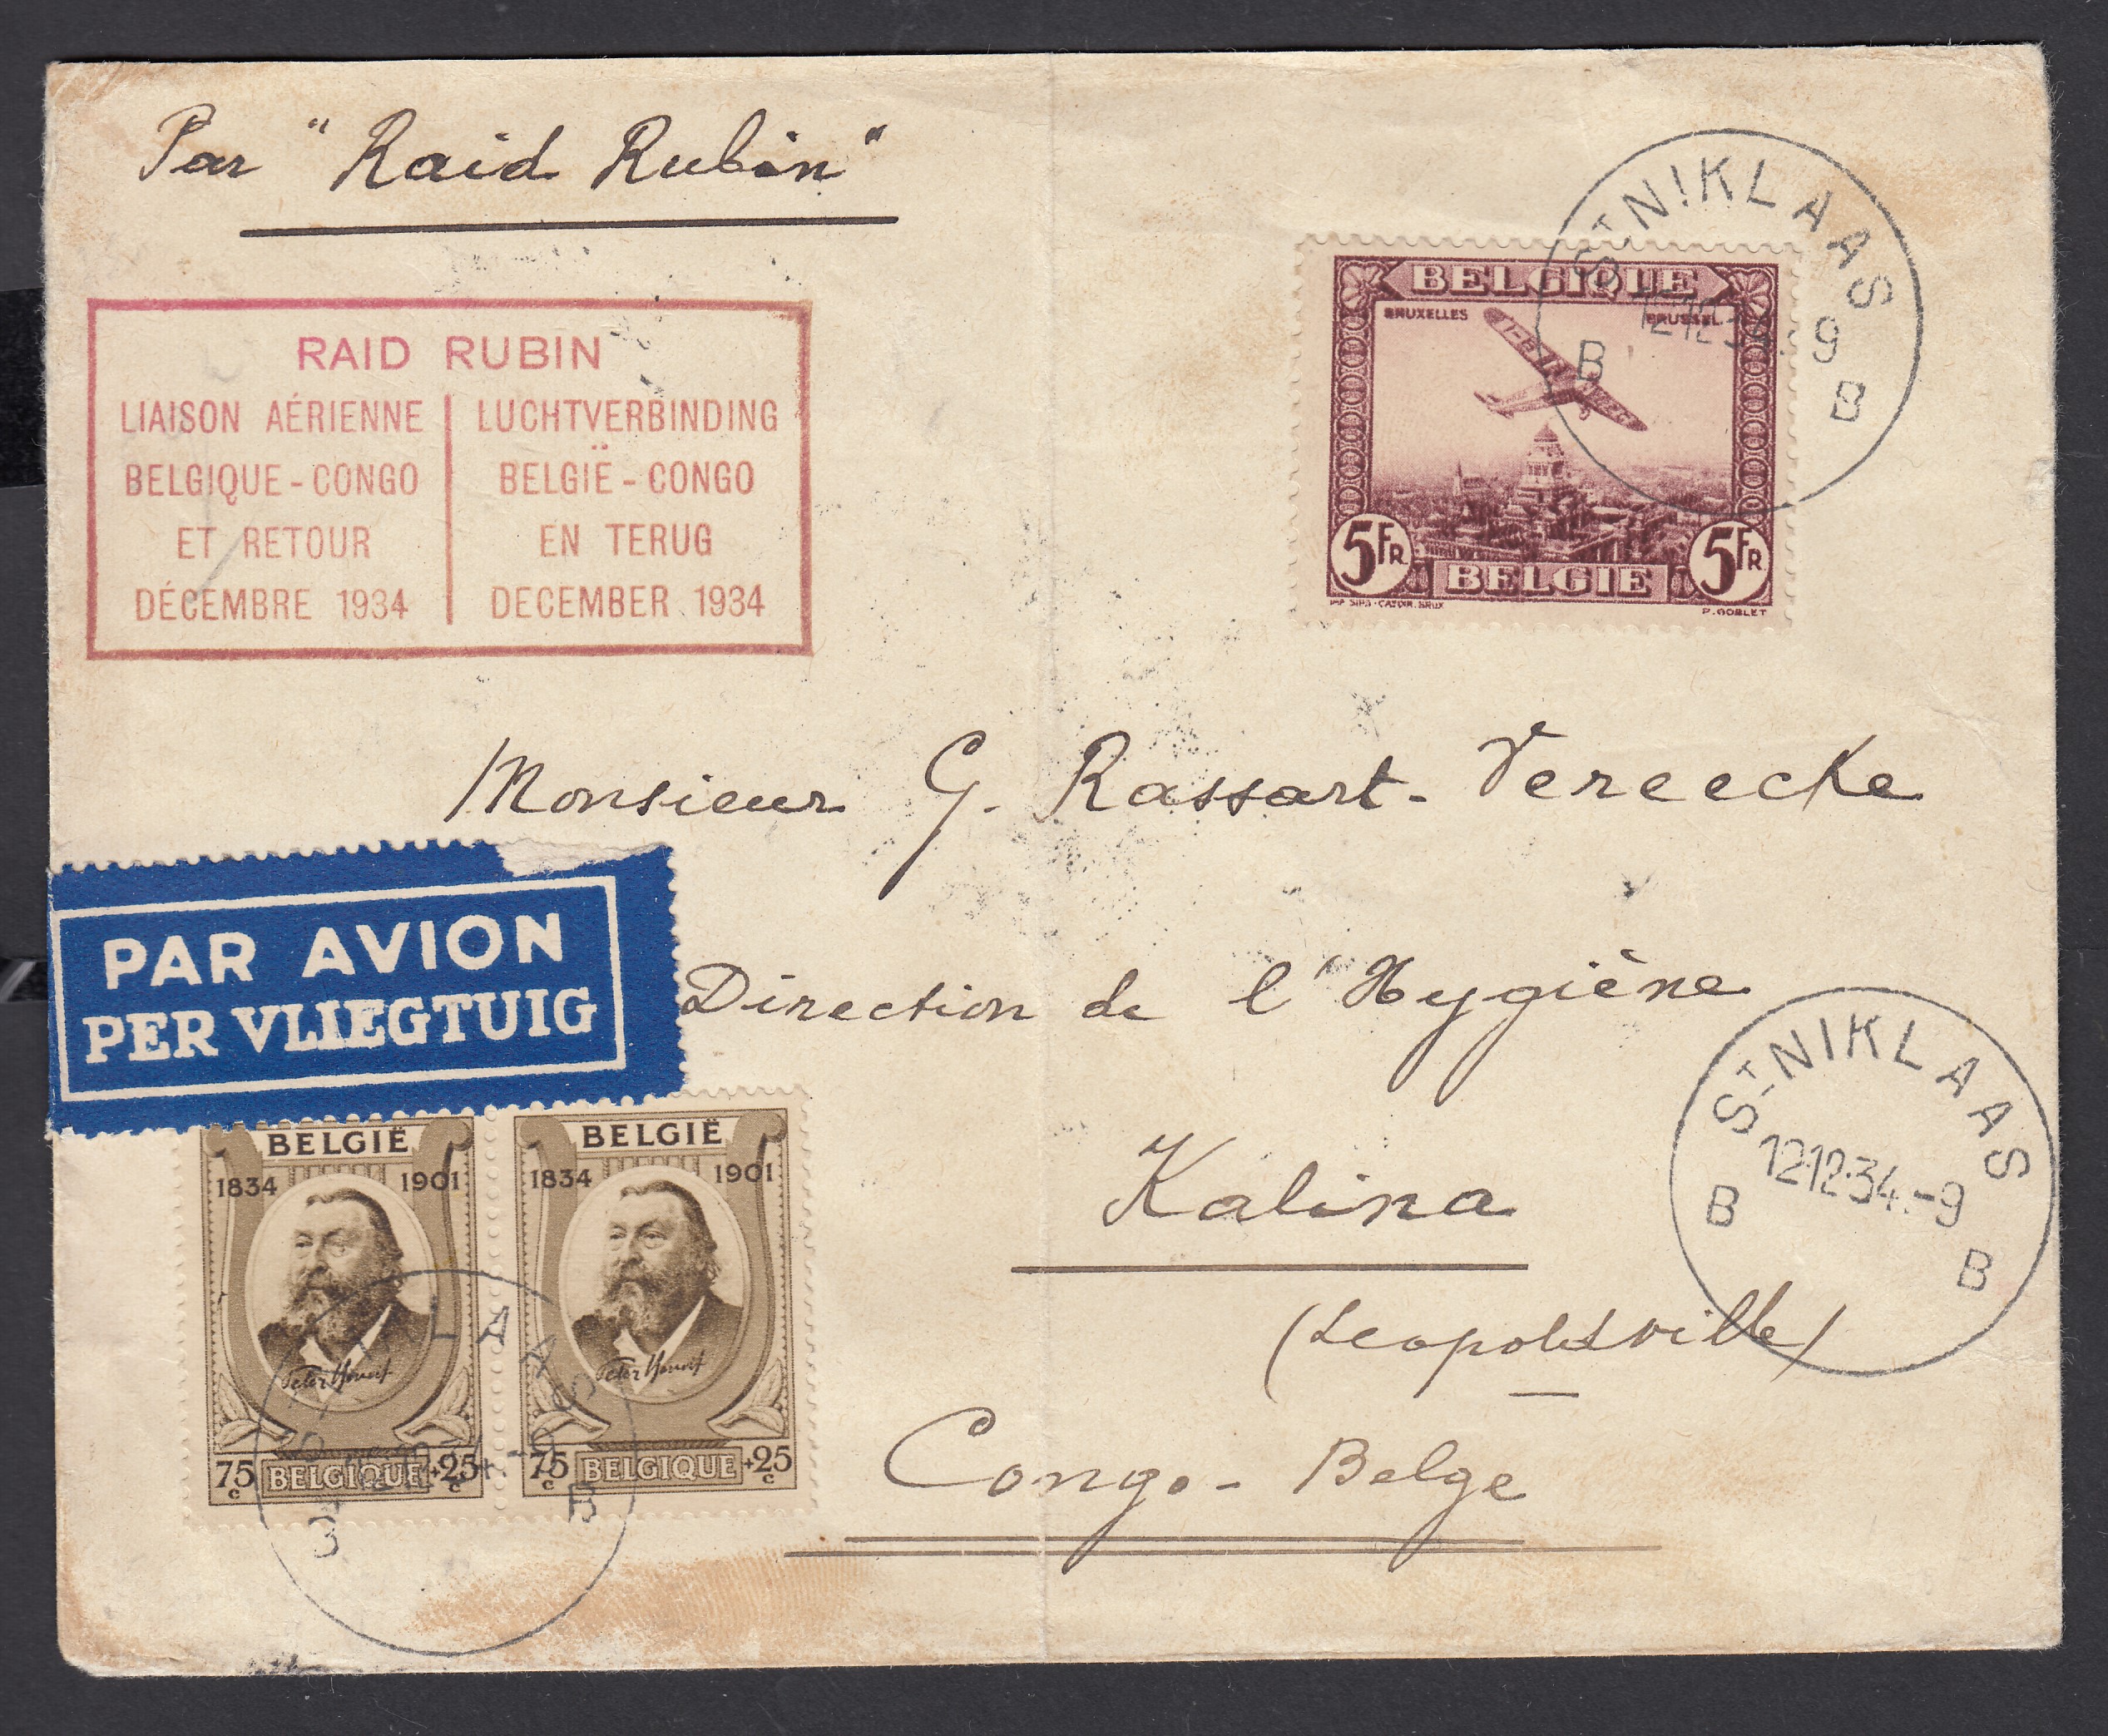 Par "Raid Rubin"
RAID RUBIN
LIAISON AÉRIENNE
BELGIQUE - CONGO
ET RETOUR
DÉCEMBRE 1934
LUCHTVERBINDING
BELGIË - CONGO
EN TERUG
DECEMBER 1934
ST NIKLAAS
12.12.34.-9
B B
BELGIQUE
BRUXELLES BRUSSEL
5 FR 5 FR
BELGIE
P. GOBLET
Monsieur G. Rassart-Vereecke
PAR AVION
PER VLIEGTUIG
Direction de l'Hygiène
Kalina
(Leopoldville)
Congo-Belge
ST NIKLAAS
12.12.34.-9
B B
BELGIË
1834 1901
Peter Benoit
75c BELGIQUE +25c
BELGIË
1834 1901
Peter Benoit
75c BELGIQUE +25c